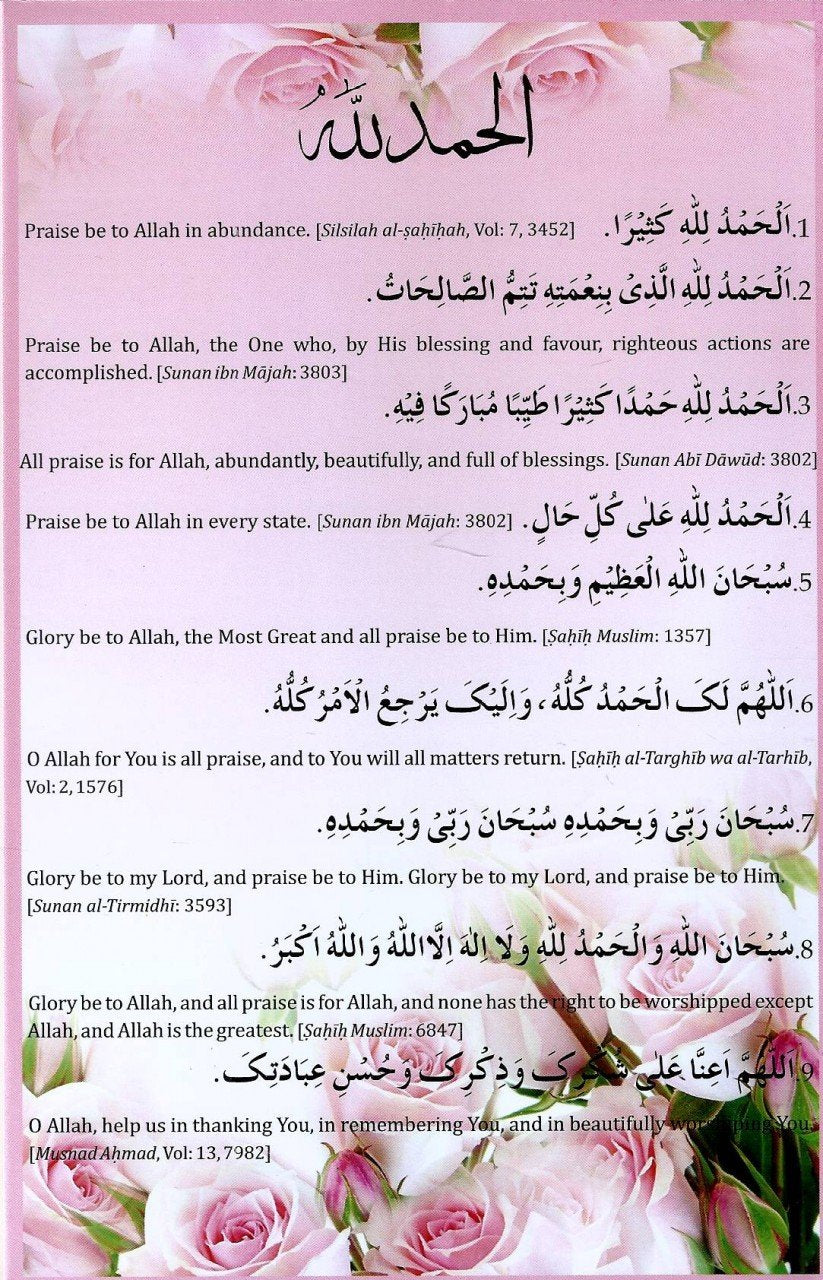 الحمد للهُ
1. اَلۡحَمۡدُ لِلّٰهِ كَثِيۡرًا.
Praise be to Allah in abundance. [Silsilah al-ṣaḥīḥah, Vol: 7, 3452]
2. اَلۡحَمۡدُ لِلّٰهِ الَّذِىۡ بِنِعۡمَتِهِ تَتِمُّ الصَّالِحَاتُ.
Praise be to Allah, the One who, by His blessing and favour, righteous actions are
accomplished. [Sunan ibn Mājah: 3803]
3. اَلۡحَمۡدُ لِلّٰهِ حَمۡدًا كَثِيۡرًا طَيِّبًا مُبَارَكًا فِيۡهِ.
All praise is for Allah, abundantly, beautifully, and full of blessings. [Sunan Abī Dāwūd: 3802]
4. اَلۡحَمۡدُ لِلّٰهِ عَلٰى كُلِّ حَالٍ.
Praise be to Allah in every state. [Sunan ibn Mājah: 3802]
5. سُبۡحَانَ اللّٰهِ الۡعَظِيۡمِ وَبِحَمۡدِهِ.
Glory be to Allah, the Most Great and all praise be to Him. [Ṣaḥīḥ Muslim: 1357]
6. اَللّٰهُمَّ لَکَ الۡحَمۡدُ كُلُّهُ، وَاِلَيۡکَ يَرۡجِعُ الۡاَمۡرُ كُلُّهُ.
O Allah for You is all praise, and to You will all matters return. [Ṣaḥīḥ al-Targhīb wa al-Tarhīb,
Vol: 2, 1576]
7. سُبۡحَانَ رَبِّىۡ وَبِحَمۡدِهِ سُبۡحَانَ رَبِّىۡ وَبِحَمۡدِهِ.
Glory be to my Lord, and praise be to Him. Glory be to my Lord, and praise be to Him.
[Sunan al-Tirmidhī: 3593]
8. سُبۡحَانَ اللّٰهِ وَالۡحَمۡدُ لِلّٰهِ وَلَا اِلٰهَ اِلَّا اللّٰهُ وَاللّٰهُ اَكۡبَرُ.
Glory be to Allah, and all praise is for Allah, and none has the right to be worshipped except
Allah, and Allah is the greatest. [Ṣaḥīḥ Muslim: 6847]
9. اَللّٰهُمَّ اَعِنَّا عَلٰى شُكۡرِکَ وَذِكۡرِکَ وَحُسۡنِ عِبَادَتِکَ.
O Allah, help us in thanking You, in remembering You, and in beautifully worshipping You.
[Musnad Aḥmad, Vol: 13, 7982]